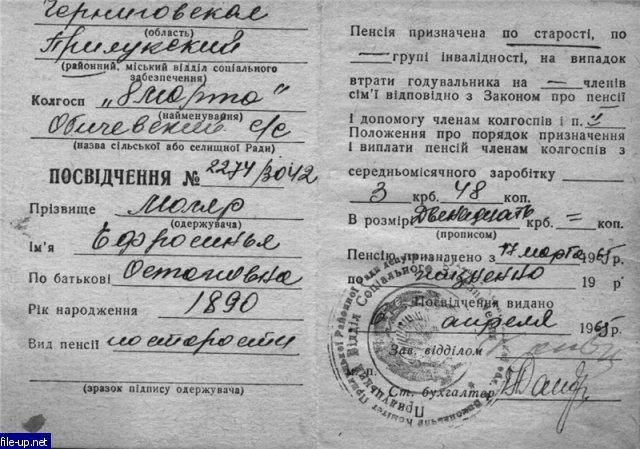 Черниговская
(область)
Прилукский
(районний, міський відділ соціального
забезпечення)
Колгосп „8 марта“
(найменування)
Обичевский с/с
(назва сільської або селищної Ради)
ПОСВІДЧЕННЯ № 2274/3042
Прізвище Моляр
(одержувача)
Ім'я Ефросинья
По батькові Остаповна
Рік народження 1890
Вид пенсії по старости
(зразок підпису одержувача)
Пенсія призначена по старості, по
— групі інвалідності, на випадок
втрати годувальника на — членів
сім'ї відповідно з Законом про пенсії
і допомогу членам колгоспів і п.
Положення про порядок призначення
і виплати пенсій членам колгоспів з
середньомісячного заробітку
3 крб. 48 коп.
В розмірі Двенадцать крб. = коп.
(прописом)
Пенсію призначено з 17 марта 1965 р.
по 19 р
Посвідчення видано
апреля 1965 р.
Зав. відділом
М. п.
Ст. бухгалтер
file-up.net